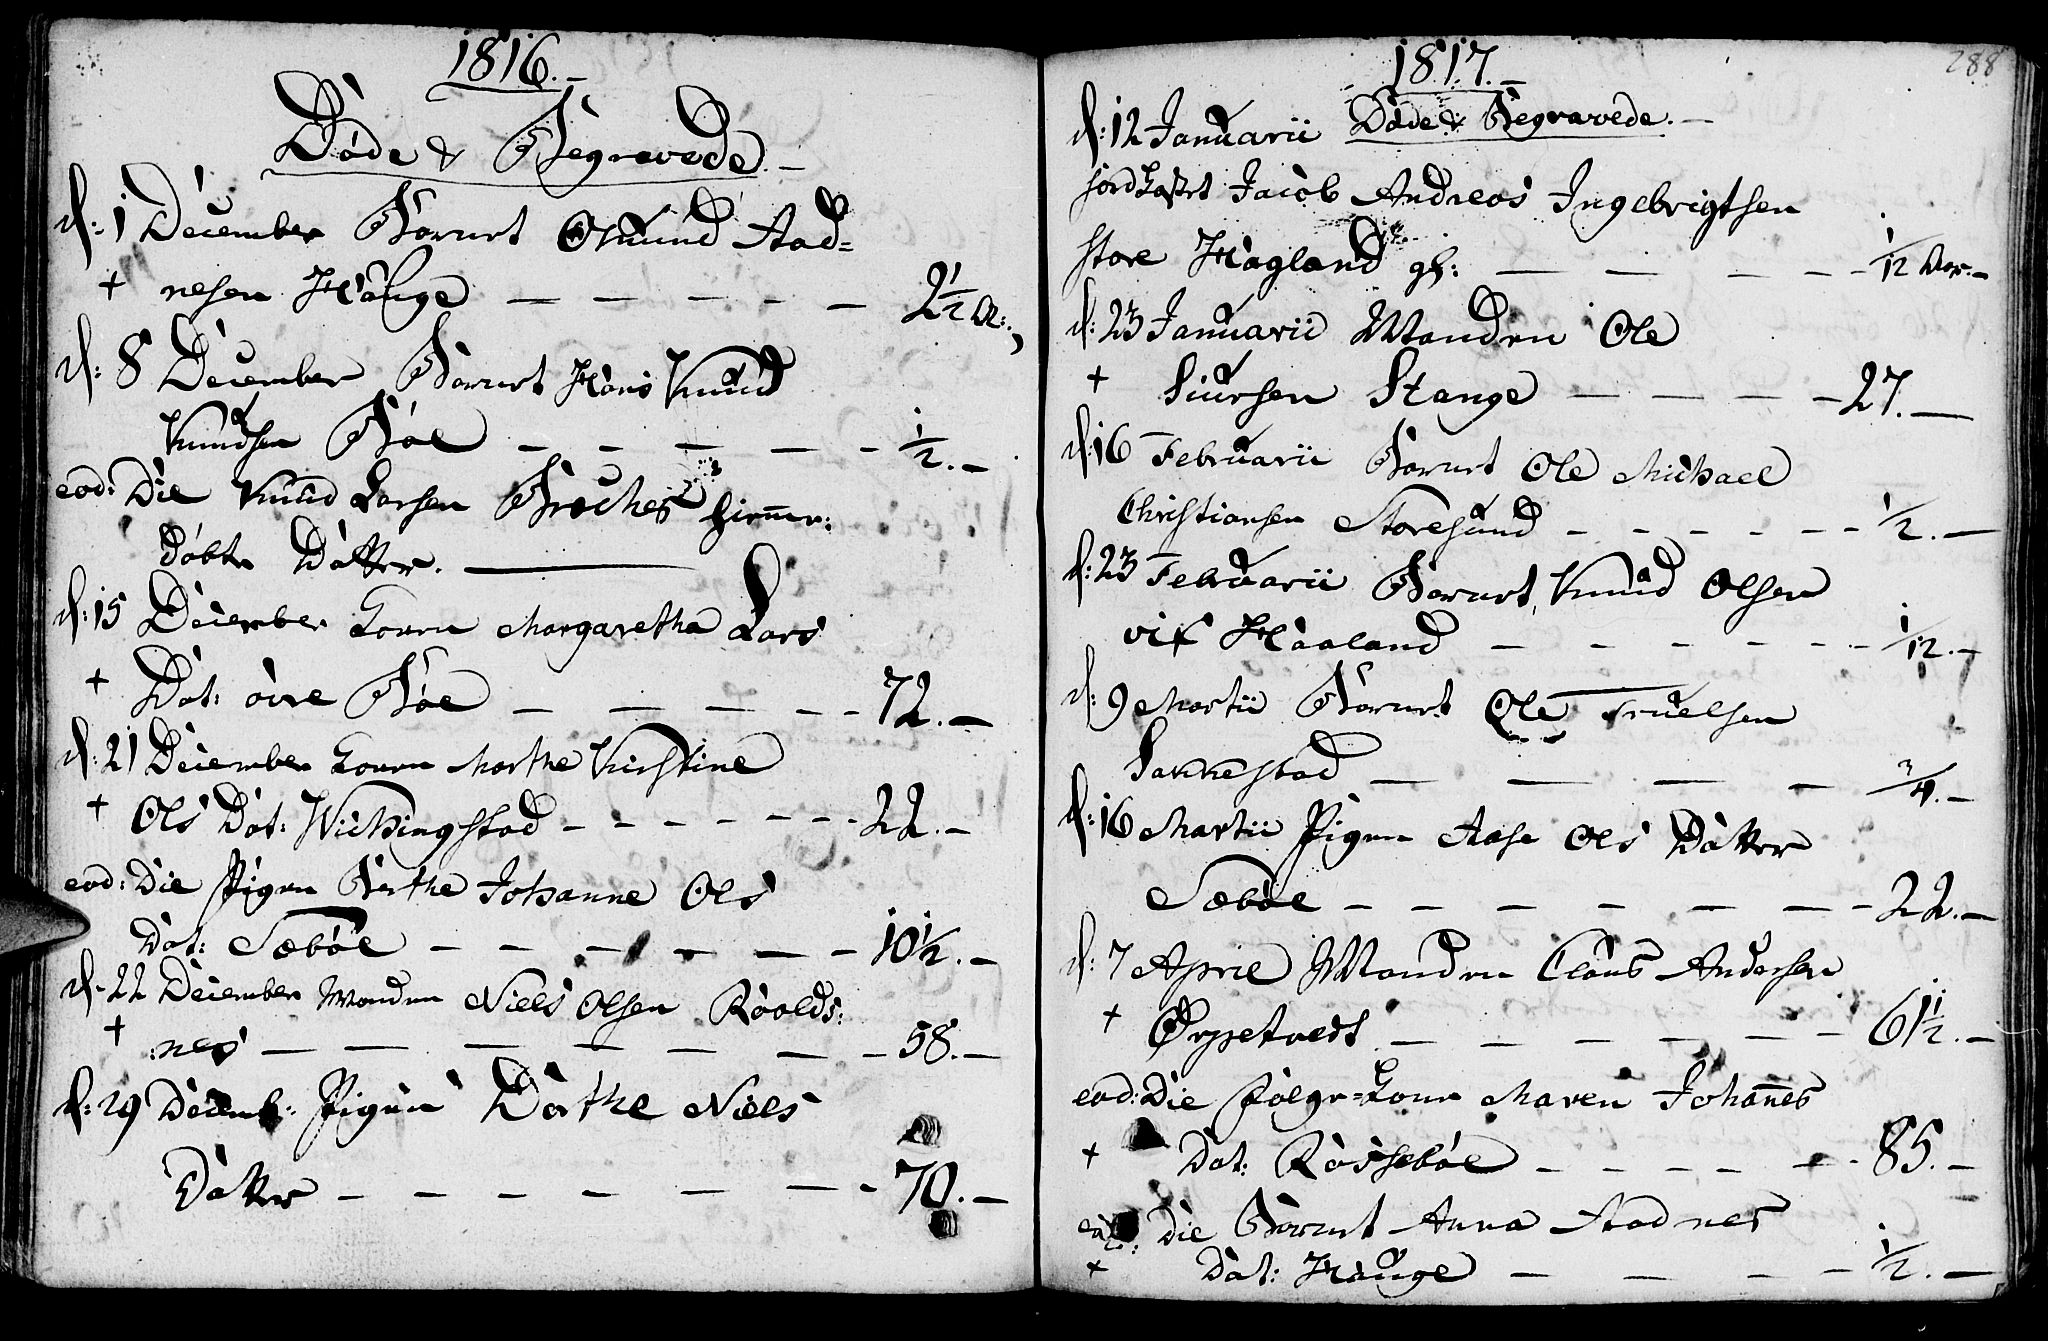 1816.-
Døde & Begravede.-
d: 1 December Barnet Osmund Aad=
+ nesen Hauge — — — — — 2 1/2 Ar:,
d: 8 December Barnet Hans Knud
Knudsen Bøe — — — — — 1/2.-
eod: Die Knud Larsen Brechets hiemme:
døbte Datter. ———
d: 15 December Konen Margaretha Lars
+ Dat: øvre Bøe — — — — — 72.-
d: 21 December Konen Marthe Kirstine
+ Ols Dat: Wichingstad — — — — — 22.-
eod: Die Pigen Berthe Johanne Ols
Dat: Sæbøe — — — — — 10 1/2.-
d: 22 December Manden Niels Olsen Røolds:
+ :nes — — — — — 58.-
d: 29 Decemb: Pigen Dorthe Niels
Datter — — — — — 70.-
288
1817.-
d: 12 Januarii Døde & Begravede.-
jordkastet Jacob Andreas Ingebrigtsen
store Hagland gl: — — — — 1/12 Aar.-
d: 23 Januarii Manden Ole
+ Siursen Stange — — — — 27.-
d: 16 Februarii Barnet Ole Michael
Christiansen Storesund — — — — — 1/2.-
d: 23 Februarii Barnet, Knud Olsen
vix Haaland — — — — — 1/12.-
d: 9 Martii Barnet Ole Truelsen
Sakkestad — — — — 3/4.-
d: 16 Martii Pigen Aase Ols Datter
Sæbøe — — — — — 22.-
d: 7 April Manden Claus Andersen
+ Ørpetvedt — — — — — 61 1/2.-
eod: Die Følge=Kone Maren Johannes
+ Dat: Røssebøe — — — — — 85.-
eod: Die Barnet Anna Aadnes
+ Dat: Hauge — — — — 1/2.-